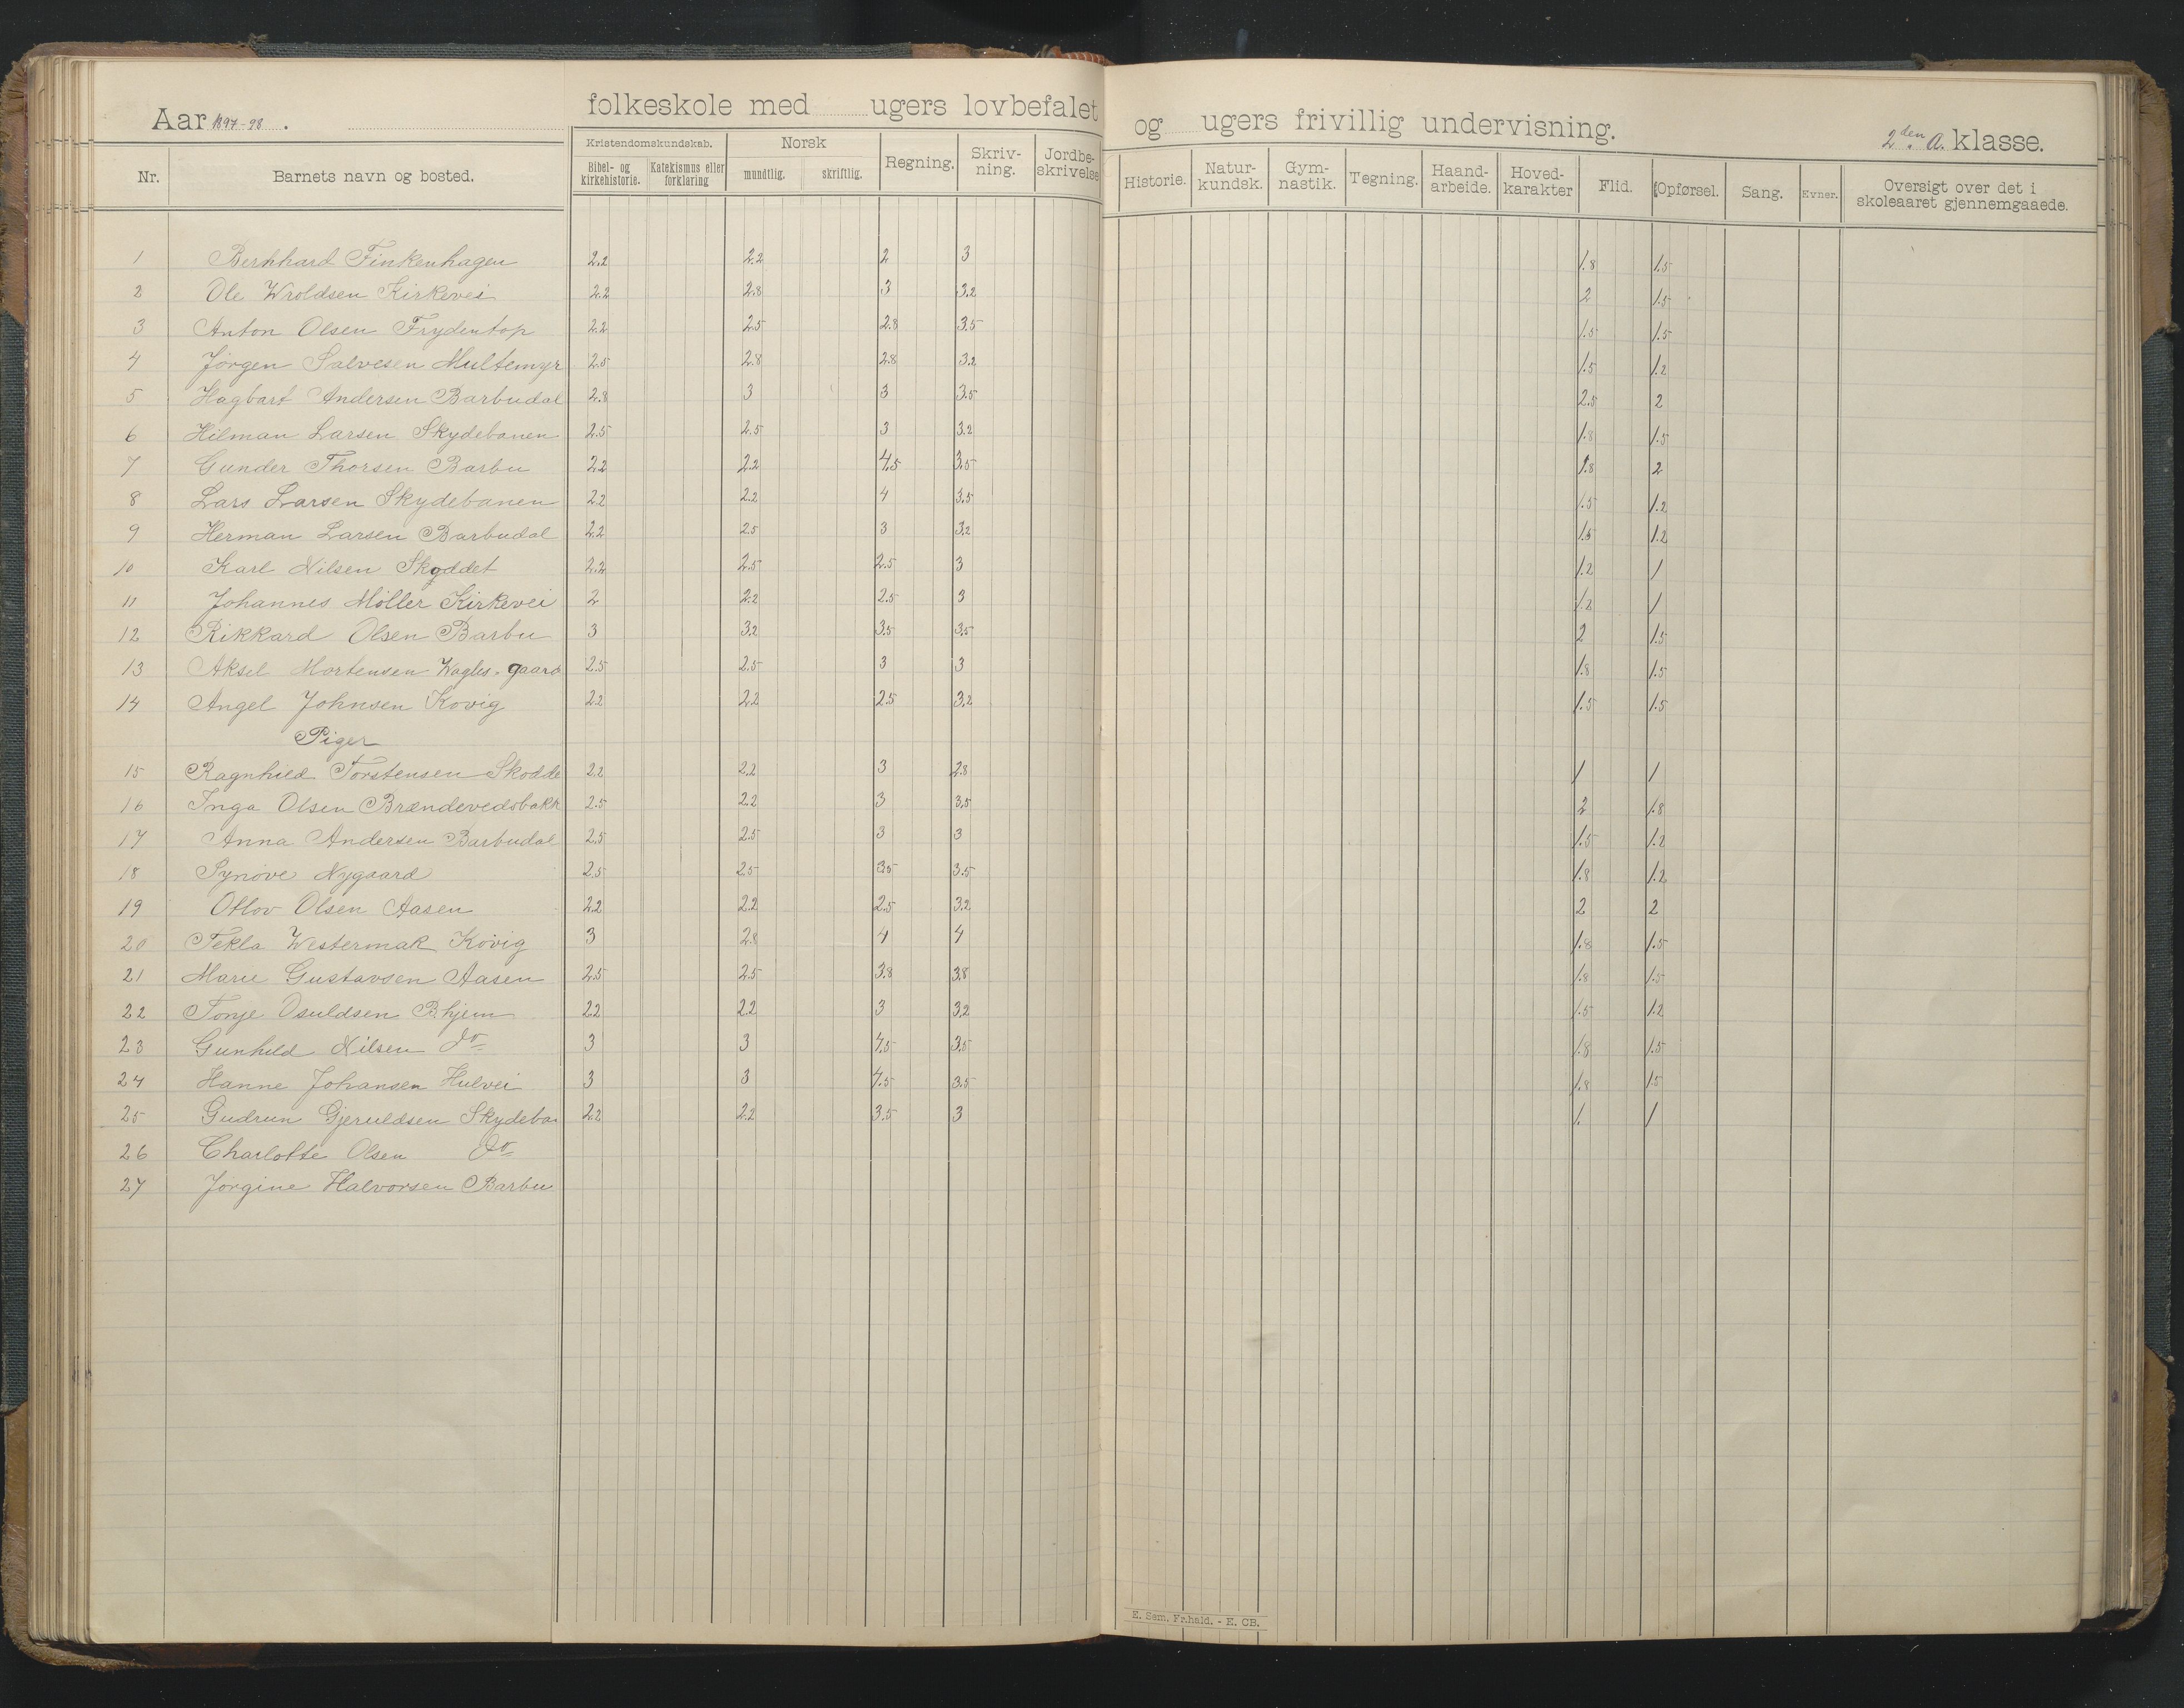 Aar 1897-98. folkeskole med ugers lovbefalet og ugers frivillig undervisning. 2den A. klasse.
Nr. Barnets navn og bosted. Kristendomskundskab. Bibel- og kirkehistorie. Katekismus eller forklaring Norsk mundtlig. skriftlig. Regning. Skriv-ning. Jordbe-skrivelse Historie. Natur-kundsk. Gym-nastik. Tegning. Haand-arbeide. Hoved-karakter Flid. Opførsel. Sang. Evner. Oversigt over det i skoleaaret gjennemgaaede.
1 Bernhard Finkenhagen 2.2 2.2 2 3 1.8 1.5
2 Ole Wroldsen Kirkevei 2.2 2.8 3 3.2 2 1.5
3 Anton Olsen Frydentop 2.2 2.5 2.8 3.5 1.5 1.5
4 Jörgen Salvesen Multemyr 2.5 2.8 2.8 3.2 1.5 1.2
5 Hagbart Andersen Barbudal 2.8 3 3 3.5 2.5 2
6 Hilman Larsen Skydebanen 2.5 2.5 3 3.2 1.8 1.5
7 Gunder Thorsen Barbu 2.2 2.2 4.5 3.5 1.8 2
8 Lars Larsen Skydebanen 2.2 2.2 4 3.5 1.5 1.2
9 Herman Larsen Barbudal 2.2 2.5 3 3.2 1.5 1.2
10 Karl Nilsen Skoddet 2.2 2.5 2.5 3 1.2 1
11 Johannes Möller Kirkevei 2 2.2 2.5 3 1.2 1
12 Rikkard Olsen Barbu 3 3.2 3.5 3.5 2 1.5
13 Aksel Mortensen Wagles-gaard 2.5 2.5 3 3 1.8 1.5
14 Angel Johnsen Kovig 2.2 2.2 2.5 3.2 1.5 1.5
Piger
15 Ragnhild Torstensen Skodde 2.2 2.2 3 2.8 1 1
16 Inga Olsen Brændevedsbakk 2.5 2.2 3 3.5 2 1.8
17 Anna Andersen Barbudal 2.5 2.5 3 3 1.5 1.2
18 Synöve Nygaard 2.5 2.5 3.5 3.5 1.8 1.2
19 Otlov Olsen Aasen 2.2 2.2 2.5 3.2 2 2
20 Tekla Westermak Kovig 3 2.8 4 4 1.8 1.5
21 Marie Gustavsen Aasen 2.5 2.5 3.8 3.8 1.8 1.5
22 Tonje Osuldsen B.hjem 2.2 2.2 3 3.2 1.5 1.2
23 Gunhild Nilsen do 3 3 4.5 3.5 1.8 1.5
24 Hanne Johansen Hulvei 3 3 4.5 3.5 1.8 1.5
25 Gudrun Gjeruldsen Skydeban 2.2 2.2 3.5 3 1. 1
26 Charlotte Olsen do
27 Jörgine Halvorsen Barbu
E. Sem, Fr.hald. - E. CB.